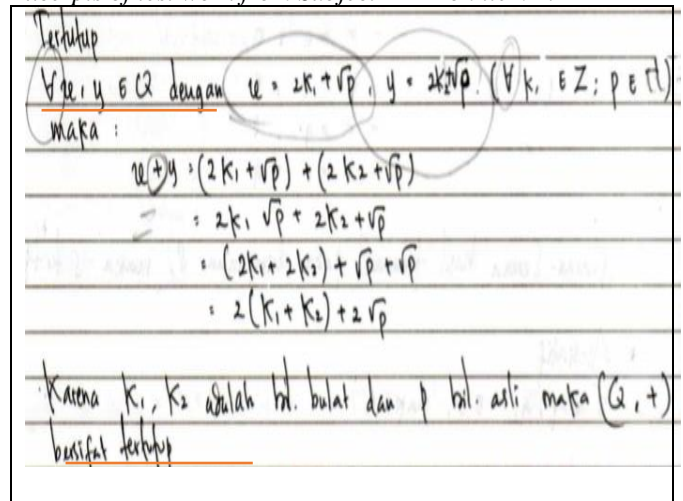 Tertutup
∀x, y ∈ Q dengan x = 2k₁ + √p, y = 2k₂+√p. (∀ k, ∈ Z; p ∈
maka :
x + y = (2k₁ + √p) + (2k₂ + √p)
= 2k₁ √p + 2k₂ + √p
= (2k₁ + 2k₂) + √p + √p
= 2(k₁ + k₂) + 2√p
Karena k₁, k₂ adalah bil. bulat dan p bil. asli maka (Q, +)
bersifat tertutup